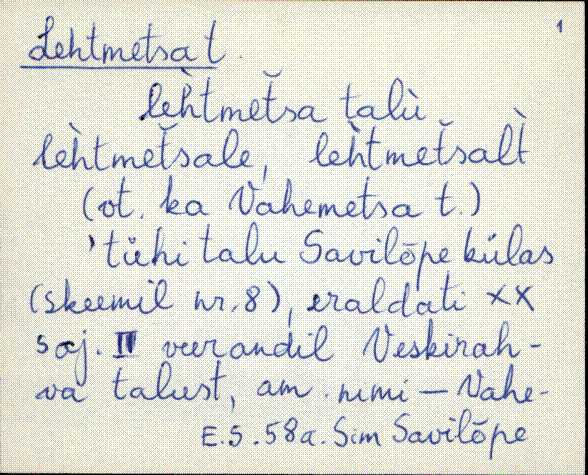 1
Lehtmetsa t.
leh̀tmet̆sa talù
lèhtmet̆sale, leh̀tmet̆salt̀
(vt. ka Vahemetsa t.)
'tühi talu Savilõpe külas
(skeemil nr. 8), eraldati XX
saj. II veerandil Veskirah-
va talust, am. nimi — Vahe-
E.S. 58a. Sim Savilõpe